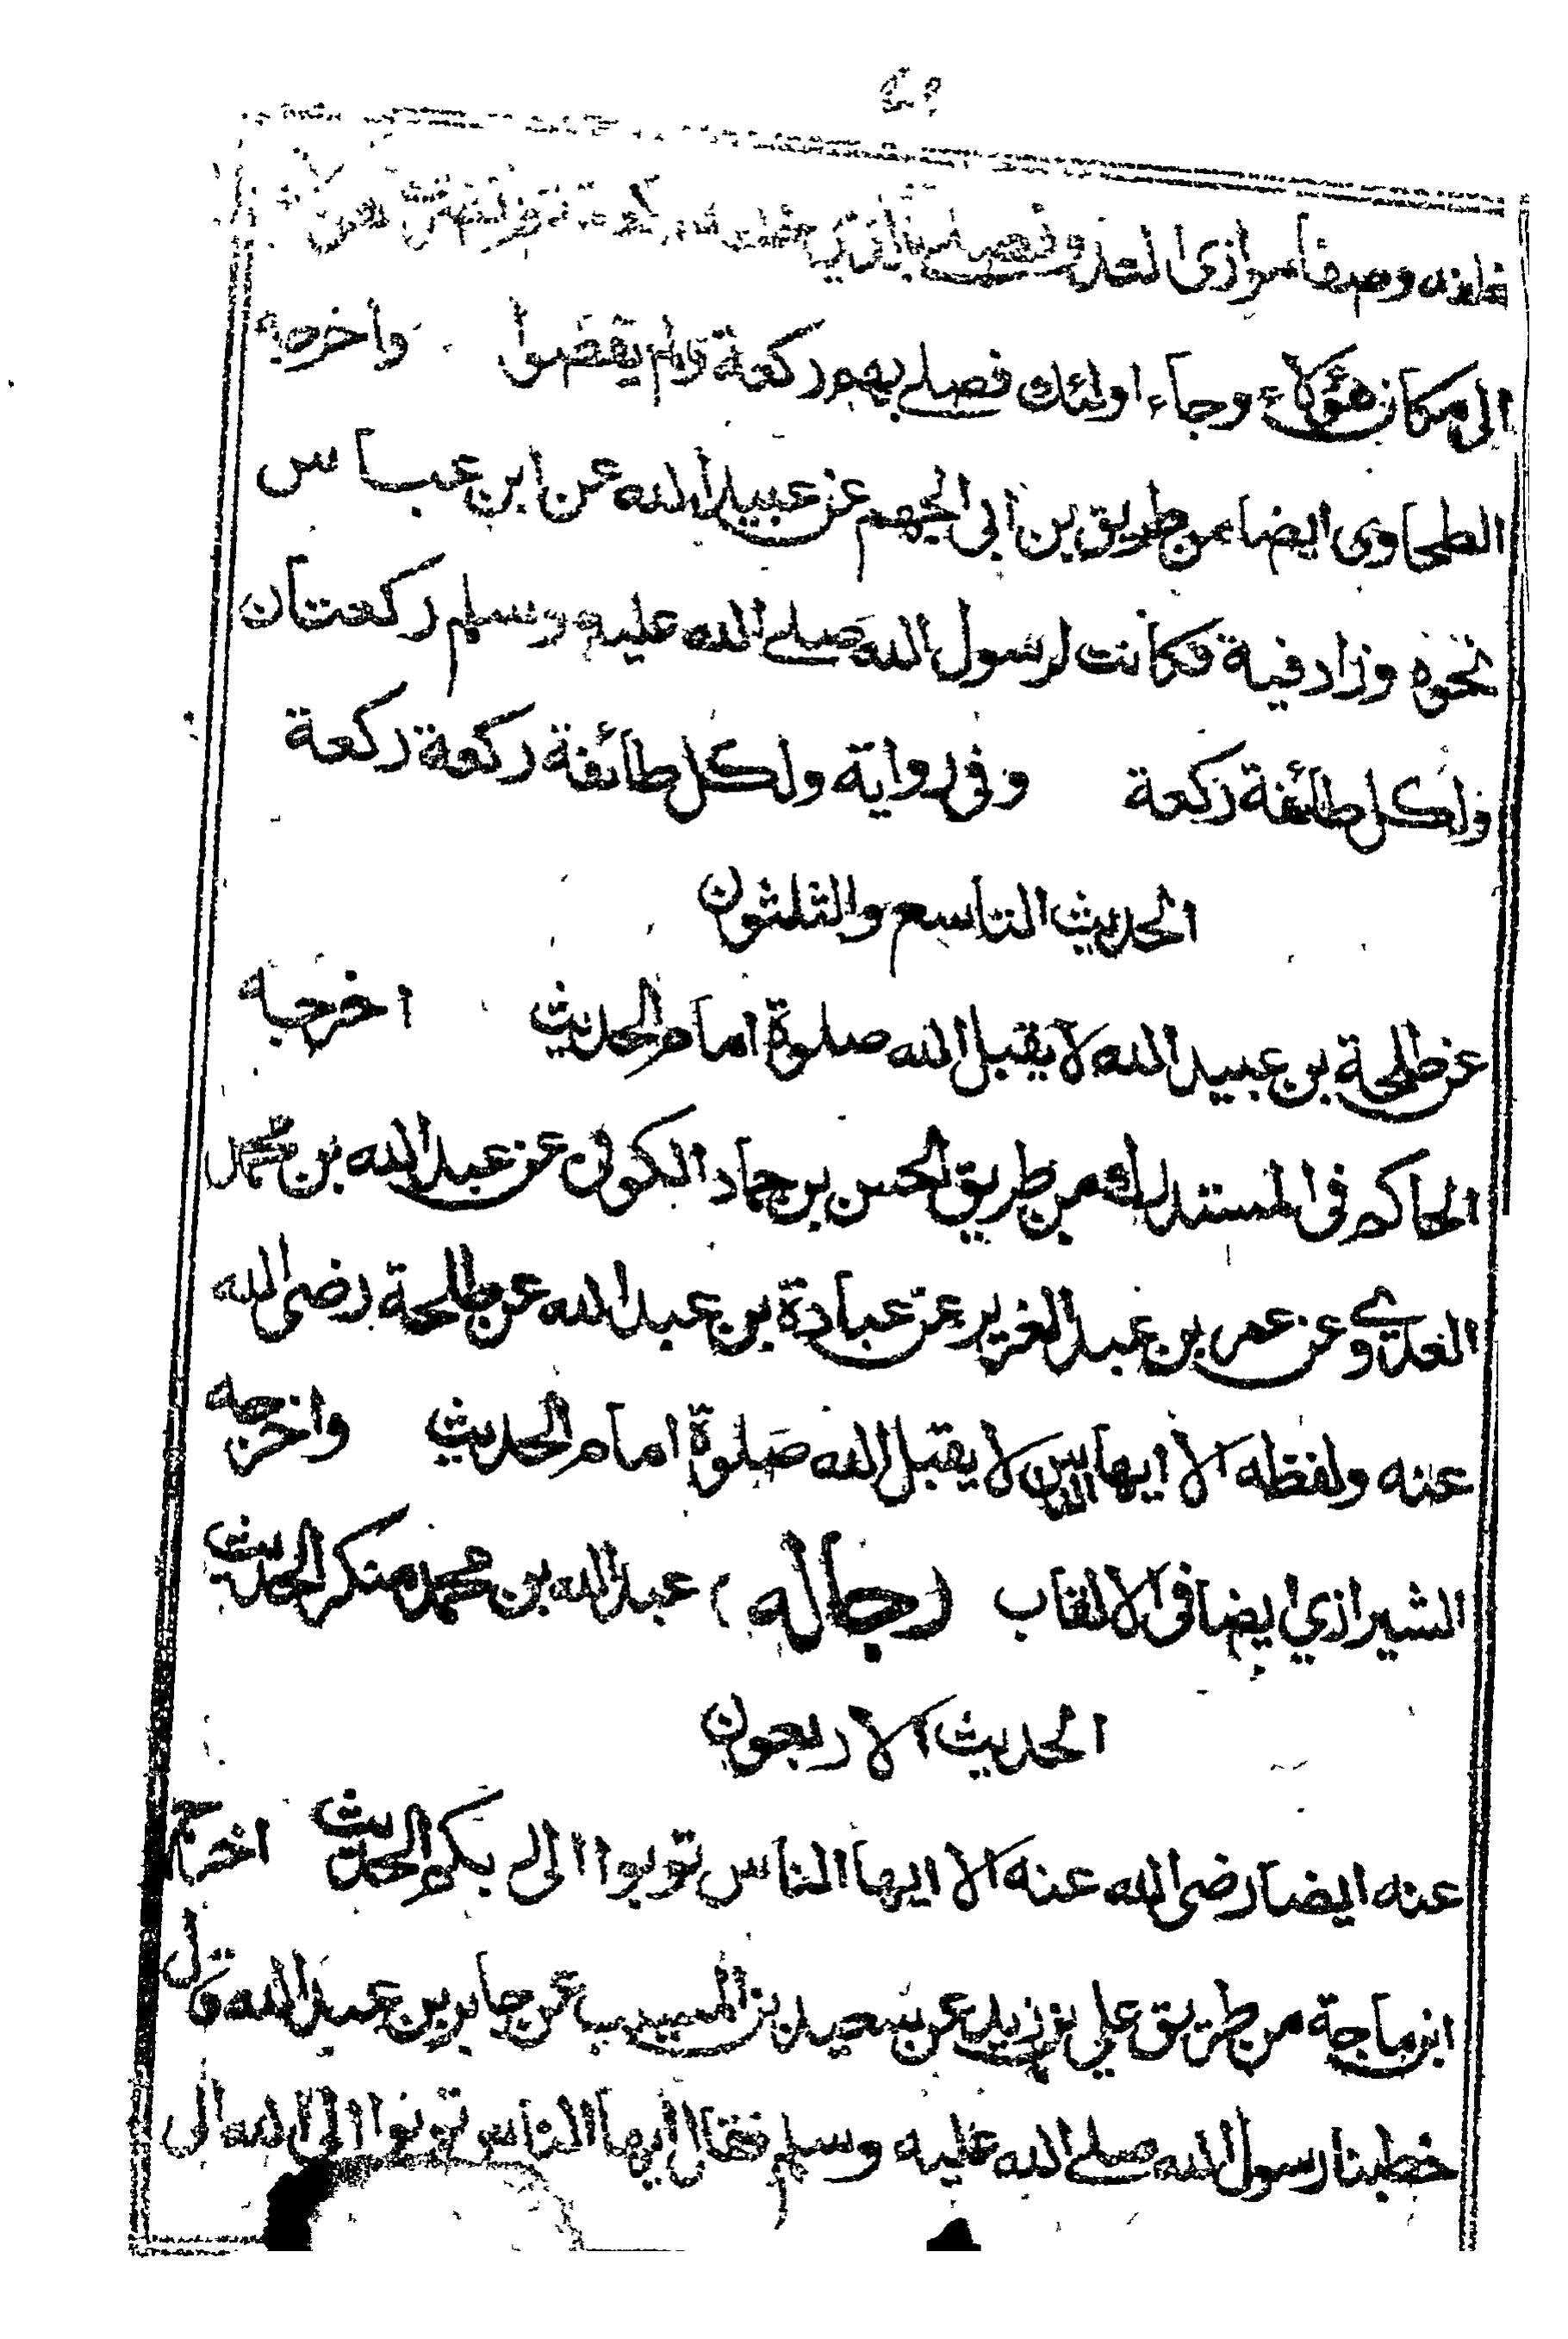 خلفه وصفا موازى العدو فصلى بالذين
الى مكان هؤلاء وجاء اولئك فصلى بهم ركعة ولم يقضوا واخرجه
الطحاوى ايضا من طريق بن ابى الجهم عن عبيد الله عن ابن عباس
نحوه وزاد فية فكانت لرسول الله صلى الله عليه وسلم ركعتان
ولكل طائفة ركعة وفى رواية ولكل طائفة ركعة ركعة
الحديث التاسع والثلثون
عن طلحة بن عبيد الله لا يقبل الله صلوة امام الحديث اخرجه
الحاكم فى المستدرك من طريق الحسن بن حماد الكوفى عن عبد الله بن محمد
العدوي عن عمر بن عبد العزيز عن عبادة بن عبد الله عن طلحة رضى الله
عنه ولفظه الا ايها الناس لا يقبل الله صلوة امام الحديث واخرجه
الشيرازي ايضا فى الالقاب (رجاله) عبد الله بن محمد منكر الحديث
الحديث الاربعون
عنه ايضا رضى الله عنه الا ايها الناس توبوا الى ربكم الحديث اخرج
ابن ماجة من طريق علي بن زيد عن سعيد بن المسيب عن جابر بن عبد الله قال
خطبنا رسول الله صلى الله عليه وسلم فقال ايها الناس توبوا الى الله ال